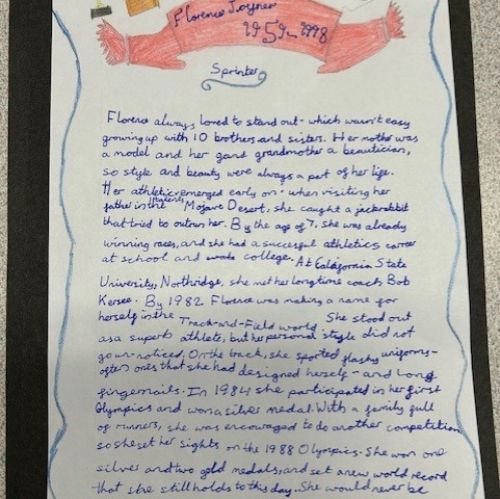 Florence Joyner
1959-1998
Sprinter
Florence always loved to stand out - which wasn't easy
growing up with 10 brothers and sisters. Her mother was
a model and her gand grandmother a beautician,
so style and beauty were always a part of her life.
Her athletic emerged early on - when visiting her
father in the Mojave Desert, she caught a jackrabbit
that tried to outrun her. By the age of 7, she was already
winning races, and she had a successful athletics career
at school and college. At California State
University, Northridge, she met her longtime coach, Bob
Kersee. By 1982 Florence was making a name for
herself in the Track-and-Field world. She stood out
as a superb athlete, but her personal style did not
go un-noticed. On the track, she sported flashy uniforms -
often ones that she had designed herself - and long
fingernails. In 1984 she participated in her first
Olympics and won a silver medal. With a family full
of runners, she was encouraged to do another competetion
so she set her sights on the 1988 Olympics. She won one
silver and two gold medals, and set a new world record
that she still holds to this day. She would never be